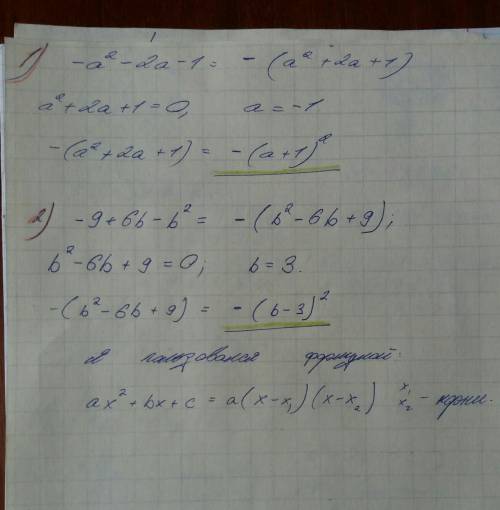 1) -a² - 2a - 1 = - (a² + 2a + 1)
a² + 2a + 1 = 0, a = -1.
-(a² + 2a + 1) = -(a+1)²
2) -9 + 6b - b² = -(b² - 6b + 9);
b² - 6b + 9 = 0; b = 3.
-(b² - 6b + 9) = -(b-3)²
Я пользовался формулой:
ax² + bx + c = a(x - x₁)(x - x₂) x₁ x₂ - корни.